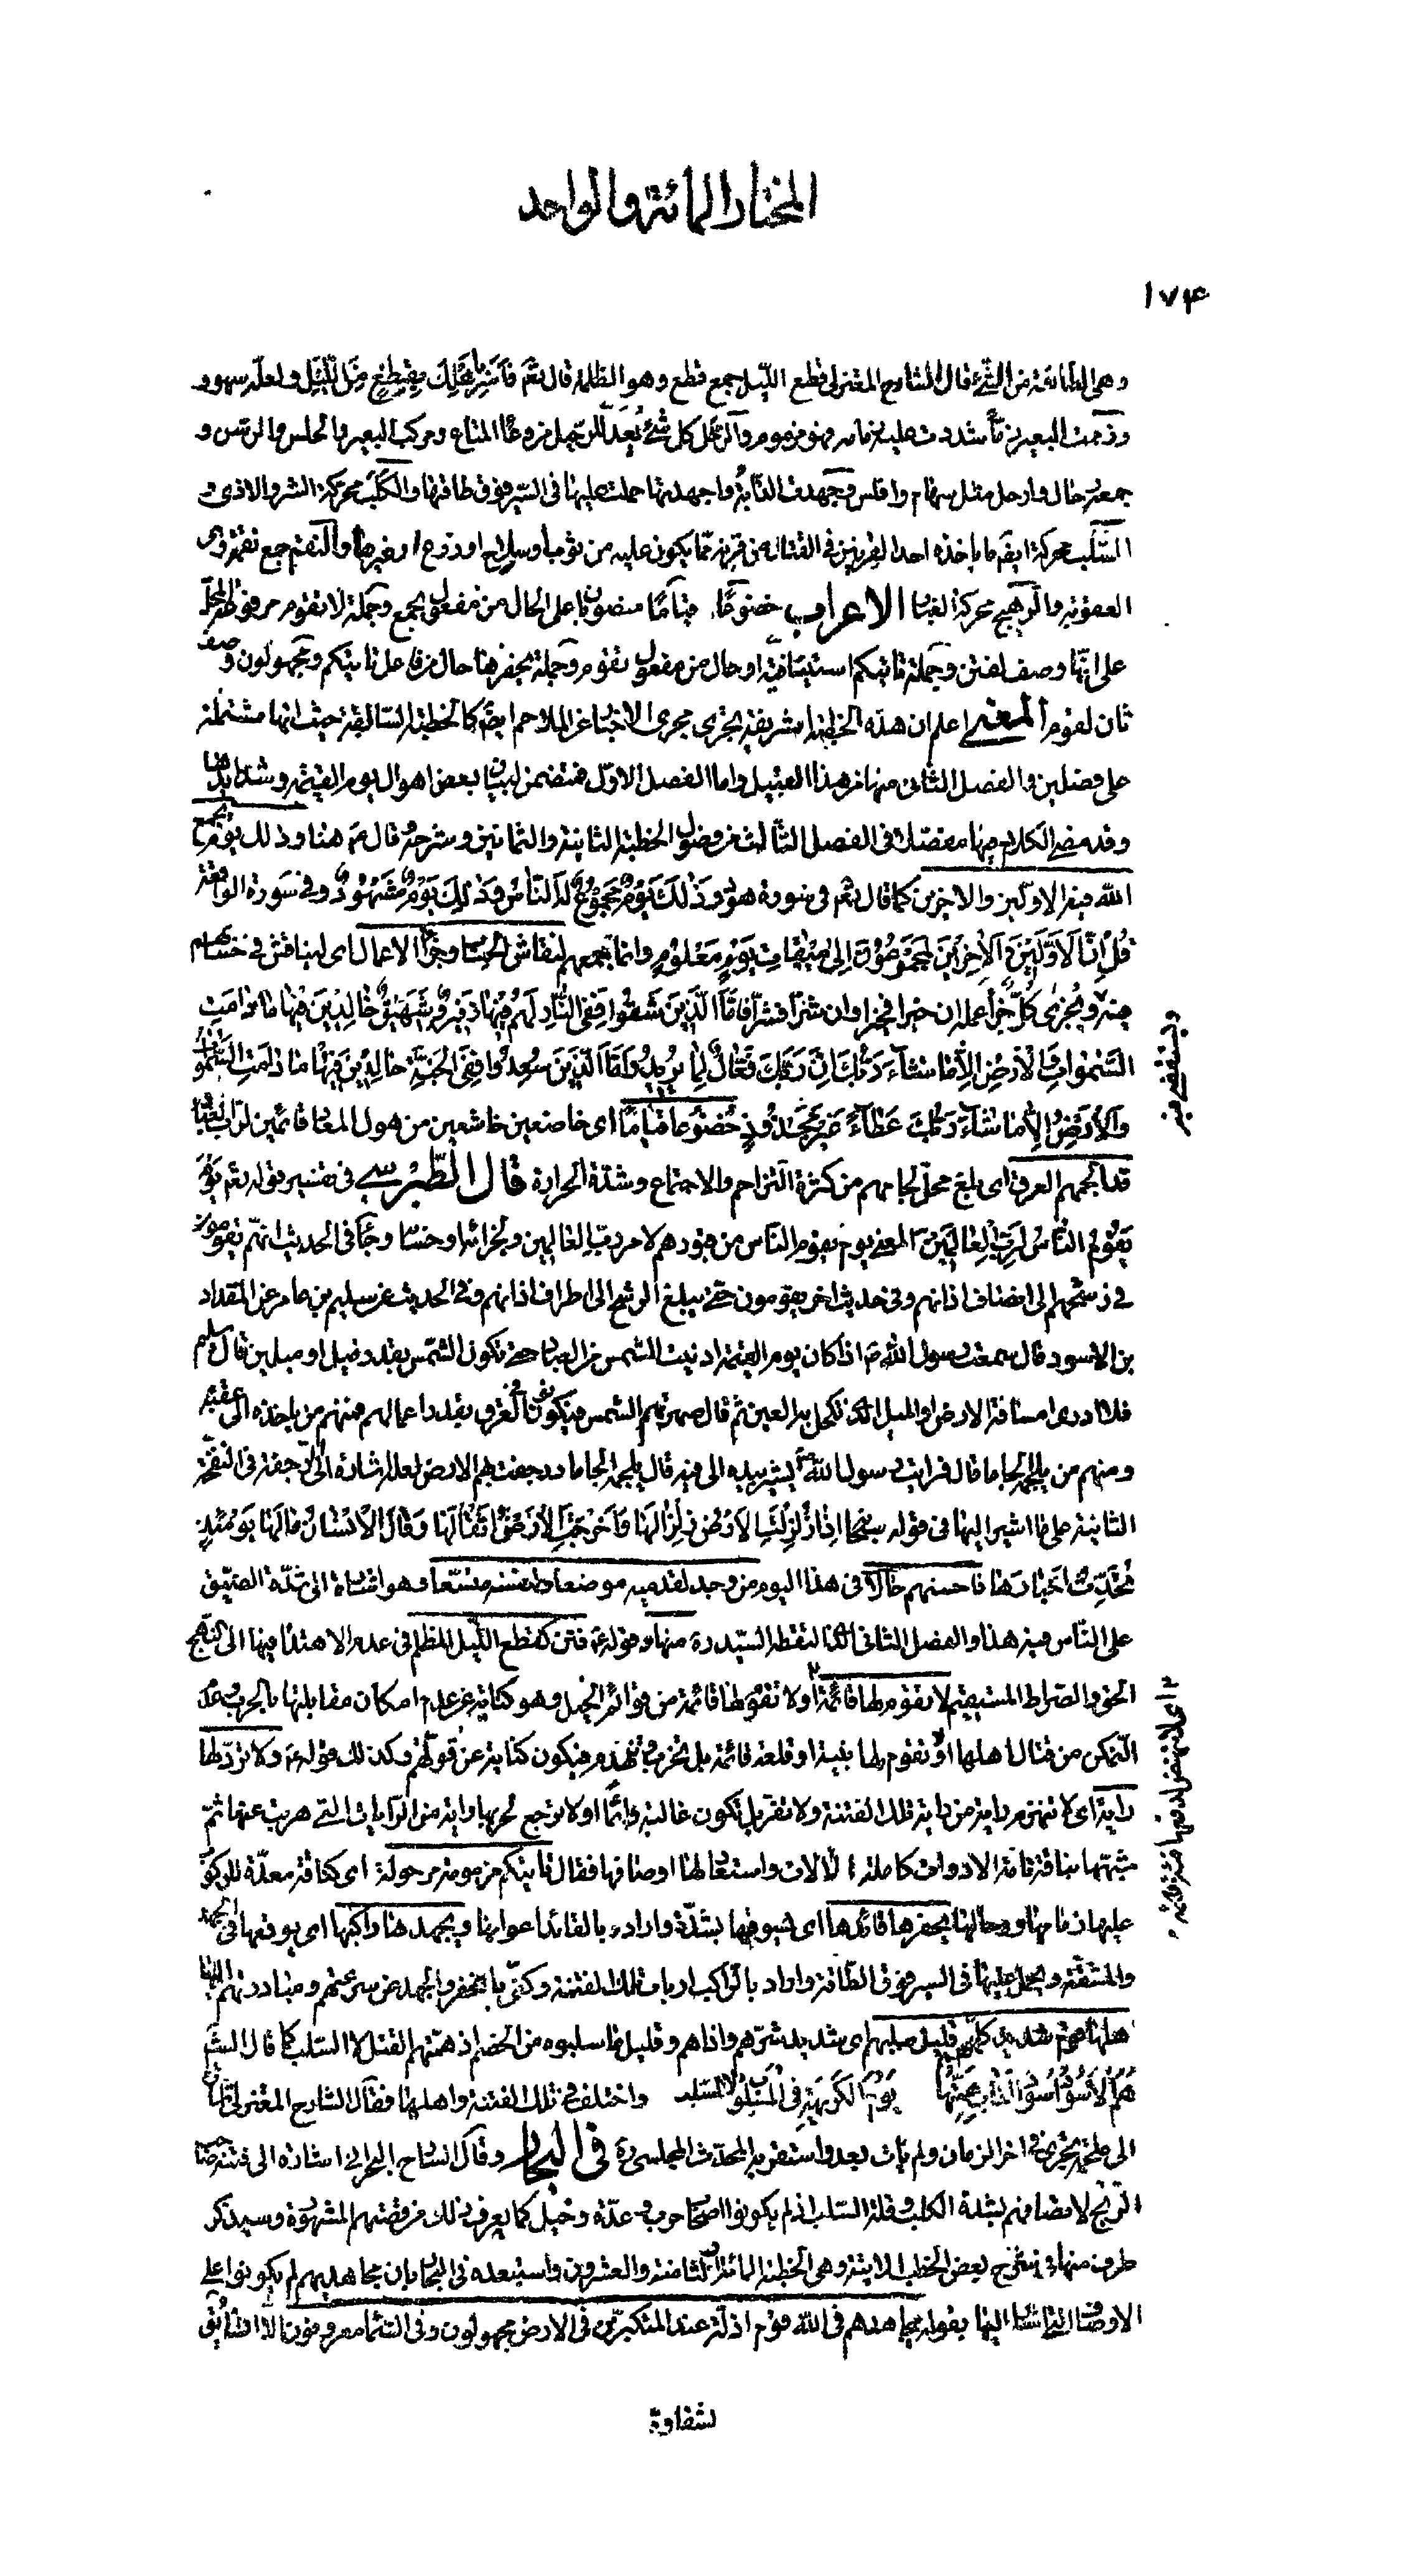 المختار المائة والواحد
١٧۴
وهى الطائفة من الشئ قال الشارح المعتزلى قطع الليل جمع قطع وهو الظلمة قال تعم فَاَسْرِ بِاَهْلِكَ بِقِطْعٍ مِنَ اللَّيْلِ ولعله سهو و
وزممت البعير زمّا شددت عليه زمامه فهو مزموم والرحل كل شئ يعدّ للرّحيل من وعاء المتاع ومركب البعير والحلس والرسن و
جمعه رحال وارحل مثل سهام وافلس وجهدت الدّابّة واجهدتها حملت عليها فى السّير فوق طاقتها والكَلَب محركة الشر والاذى و
السَّلَب محركة ايضا ما ياخذه احد القرنين فى القتال من قرنه ممّا يكون عليه من ثوب او سلاح او درع او غيرها والنقم جمع نقمة وهى
العقوبة والرّهج محركة الغبار الاعراب خضوعًا، قيامًا منصوبان على الحال من مفعول يجمع وجملة لا تقوم مرفوعة المحلّ
على انّها وصف لفتن وجملة تاتيكم استينافية او حال من مفعول تقوم وجملة يحفزها حال من فاعل تاتيكم ومجهولون وصف
ثان لقوم المعنى اعلم ان هذه الخطبة الشريفة تجرى مجرى الاخبار عن الملاحم ايضا كالخطبة السّالفة حيث انها مشتملة
على فصلين والفصل الثانى منها من هذا القبيل واما الفصل الاوّل فمتضمن لبيان بعض اهوال يوم القيمة وشدايدها
وقد مضى الكلام فيها مفصلا فى الفصل الثالث من فصول الخطبة الثانية والثمانين وشرحه قال ع هنا وذلك يوم يجمع
اللّه فيه الاولين والاخرين كما قال تعم فى سورة هود وَذٰلِكَ يَوْمٌ مَجْمُوعٌ لَهُ النَّاسُ وَذٰلِكَ يَوْمٌ مَشْهُودٌ وفى سورة الواقعة
قُلْ اِنَّ الْاَوَّلينَ وَالْاٰخِرينَ لَمَجْمُوعُونَ اِلىٰ ميقٰاتِ يَوْمٍ مَعْلُومٍ وانما يجمعهم لنقاش الحساب وجزاء الاعمال اى ليناقش فى حسابهم
فيه ويُجزى كلّ جزاء عمله ان خيرا فخيرا وان شرّا فشرّا فَاَمَّا الَّذينَ شَقُوا فَفِى النَّارِ لَهُمْ فيهٰا زَفيرٌ وَشَهيقٌ خٰالِدينَ فيهٰا مٰا دٰامَتِ
السَّمٰوٰاتُ وَالْاَرْضُ اِلّا مٰا شٰاءَ رَبُّكَ اِنَّ رَبَّكَ فَعّٰالٌ لِمٰا يُريدُ وَاَمَّا الَّذينَ سُعِدُوا فَفِى الْجَنَّةِ خٰالِدينَ فيهٰا مٰا دٰامَتِ السَّمٰوٰاتُ
وَالْاَرْضُ اِلّا مٰا شٰاءَ رَبُّكَ عَطٰاءً غَيْرَ مَجْذُوذٍ خضوعا قيامًا اى خاضعين خاشعين من هول المعاد قائمين لربّ العباد
قد الجمهم العرق اى بلغ محلّ لجامهم من كثرة التزاحم والاجتماع وشدّة الحرارة قال الطّبرسى فى تفسير قوله تعم يَوْمَ
يَقُومُ النّٰاسُ لِرَبِّ الْعٰالَمينَ المعنى يوم يقوم الناس من قبورهم لامر ربّ العالمين ولجزائه او حسابه وجاء فى الحديث انهم يقومون
فى رشحهم الى انصاف اذانهم وفى حديث اخر يقومون حتى يبلغ الرشح الى اطراف اذانهم وفى الحديث عن سليم بن عامر عن المقداد
بن الاسود قال سمعت رسول اللّه ص اذا كان يوم القيمة ادنيت الشمس من العباد حتى تكون الشّمس بقدر ميل او ميلين قال سليم
فلا ادرى امسافة الارض ام الميل الّذى تكحل به العين ثم قال صهرتهم الشمس فيكونون فى العرق بقدر اعمالهم فمنهم من ياخذه الى عقبه
ومنهم من يلجمه الجاما قال فرايت رسول اللّه ص يشير بيده الى فيه قال يلجمه الجاما ورجفت بهم الارض لعله اشارة الى الرّجفة فى النفخة
الثانية على ما اشير اليها فى قوله سبحانه اِذٰا زُلْزِلَتِ الْاَرْضُ زِلْزٰالَهٰا وَاَخْرَجَتِ الْاَرْضُ اَثْقٰالَهٰا وَقٰالَ الْاِنْسٰانُ مٰا لَهٰا يَوْمَئِذٍ
تُحَدِّثُ اَخْبٰارَهٰا فاحسنهم حالا فى هذا اليوم من وجد لقدميه موضعا ولنفسه متّسعا وهو اشارة الى شدّة الضيق
على النّاس فيه هذا والفصل الثانى الّذى التقطه السّيد ره منها وقوله ع فتن كقطع اللّيل المظلم فى عدم الاهتداء فيها الى النّهج
الحق والصّراط المستقيم لا تقوم لها قائمة اولا تقوم لها قائمة من قوائم الخيل وهو كناية عن عدم امكان مقابلتها بالحرب وعدم
التّمكن من قتال اهلها او تقوم لها بنية او قلعة قائمة بل تخرب وتنهدم فيكون كناية عن قوتهم وكذلك قوله ع ولا تردّ لها
راية اى لا تنهزم راية من راية تلك الفتنة ولا تفرّ بل تكون غالبة دائمًا او لا ترجع لحربها راية من الرايات الّتى هربت عنها ثمّ
شبّهها بناقة تامة الادوات كاملة الالات واستعار لها اوصافها فقال تاتيكم مزمومة مرحولة اى كناقة معدّة للركوب
عليها زمامها ورحالها يحفزها قائدها اى يسوقها بشدّة واراد بالقائد اعوانها ويجهدها راكبها اى يوقعها فى الجهد
والمشقّة ويحمل عليها فى السير فوق الطّاقة واراد بالرّاكب ارباب تلك الفتنة وكنّى بالحفز والجهد عن سرعتهم ومبادرتهم اليها
اهلها قوم شديد كلبهم قليل سلبهم اى شديد شرّهم واذاهم وقليل ما سلبوه من الخصم اذ همّتهم القتل لا السّلب كما قال الشاعر
هُمُ الْاُسُودُ اُسُودُ الْغٰابِ هِمَّتُهٰا   يَوْمَ الْكَريهَةِ فِى الْمَسْلُوبِ لَا السَّلَبِ   واختلف فى تلك الفتنة واهلها فقال الشارح المعتزلى انّها اشارة
الى ملحمة تجرى فى اخر الزمان ولم يات بعد واستقربه المحدّث المجلسى ره فى البحار وقال الشارح البحرانى اشارة الى فتنة صاحب
الزّنج لاتصافهم بشدة الكلب وقلة السّلب اذ لم يكونوا اصحاب حرب وعدّة وخيل كما يعرف ذلك من قصّتهم المشهورة وسيذكر
طرف منها فى شرح بعض الخطب الاتية وهى الخطبة المائة الثامنة والعشرون واستبعده فى البحار بان مجاهديهم لم يكونوا على
الاوصاف الّتى اشار اليها بقوله يجاهدهم فى اللّه قوم اذلّة عند المتكبرّين فى الارض مجهولون وفى السّماء معروفون الّا ان يقال
لشقاوة